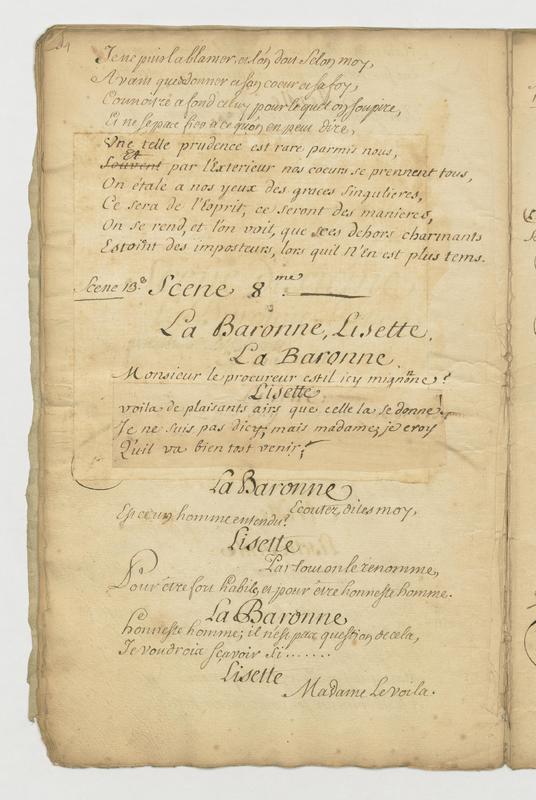 54
Je ne puis la blamer, et l'on doit selon moy,
Avant que donner et son coeur et sa foy,
Connoitre a fond celuy pour le quel on soupire,
Et ne se pas fier a ce qu'on en peut dire,
Une telle prudence est rare parmis nous,
Et
Souvent par l'Exterieur nos coeurs se prennent tous,
On étale a nos yeux des graces singulieres,
Ce sera de l'Esprit, ce seront des manieres,
On se rend, et l'on voit, que ces dehors charmants
Estoint des imposteurs, lors quil n'en est plus tems.
Scene 13.e Scene 8.me
La Baronne, Lisette.
La Baronne
Monsieur le procureur est il icy mignonne?
Lisette
voila de plaisants airs que celle la se donne!
Je ne suis pas d'icy; mais madame, je croy
Qu'il va bien tost venir;
La Baronne
Ecoutez, dites moy,
Est ce un homme entendu?
Lisette
Par tout on le renomme,
Pour être fort habile, et pour être honneste homme.
La Baronne
honneste homme; il n'est pas question de cela,
Je voudrois sçavoir si.......
Lisette
Madame le voila.